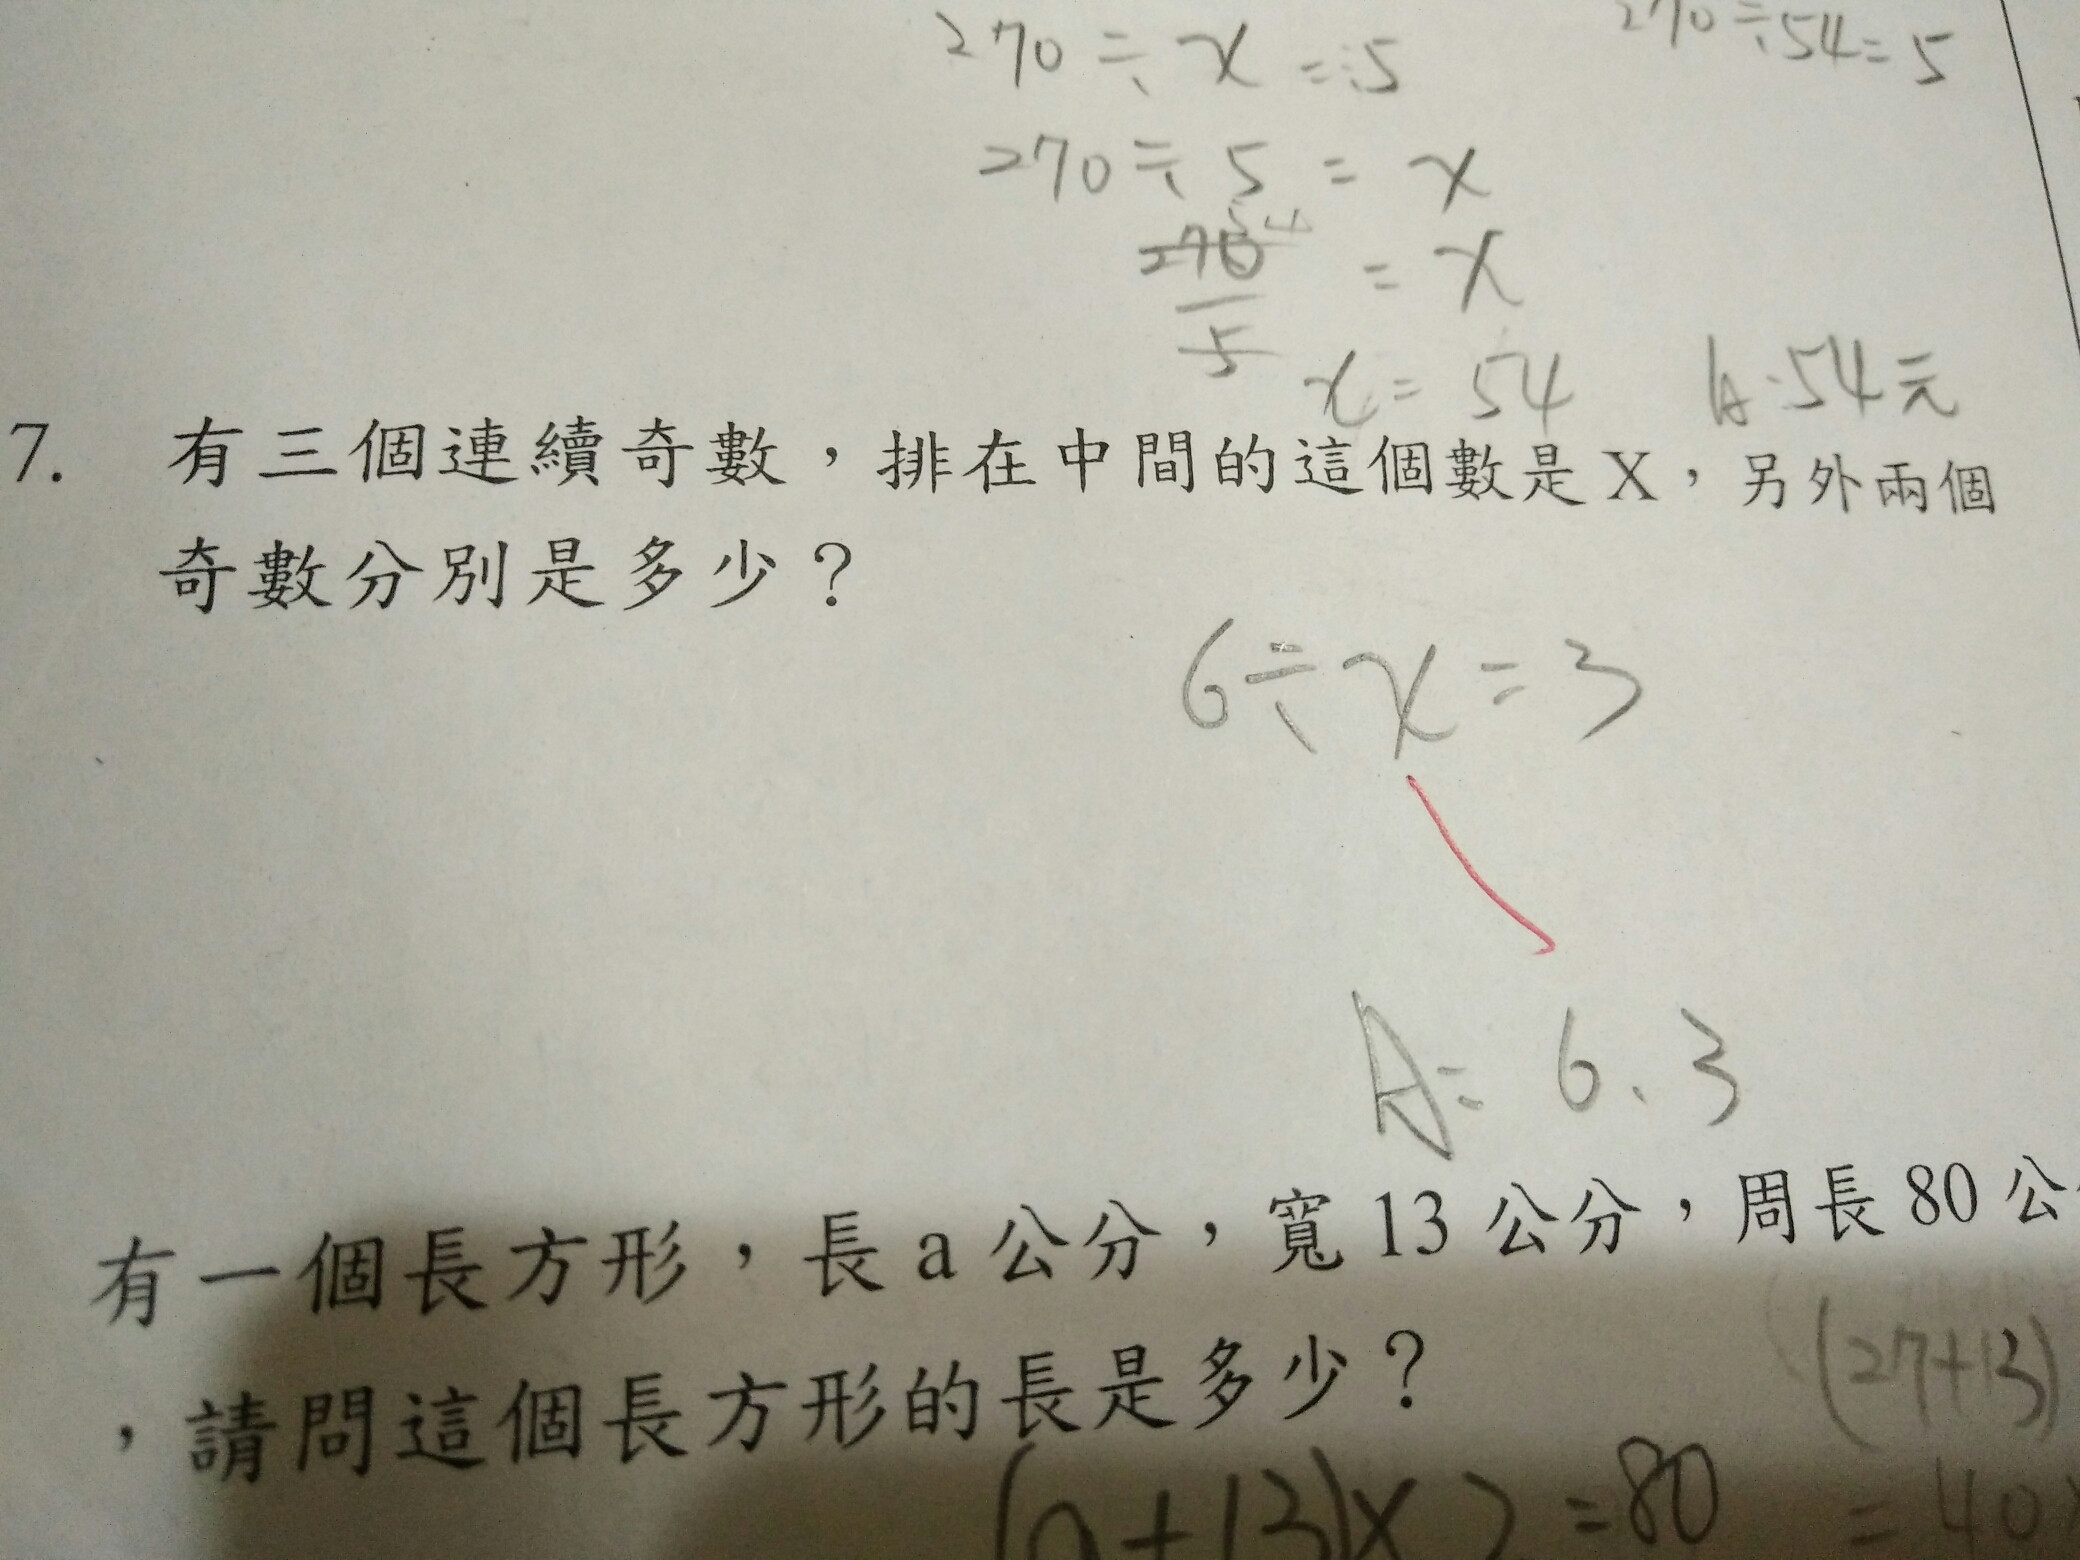 270÷x=5
270÷54=5
270÷5=x
54
270/5=x
x=54
A:54元
7. 有三個連續奇數，排在中間的這個數是X，另外兩個
奇數分別是多少？
6÷x=3
A=6、3
有一個長方形，長a公分，寬13公分，周長80公
，請問這個長方形的長是多少？
(27+13)
(a+13)×2=80
=40